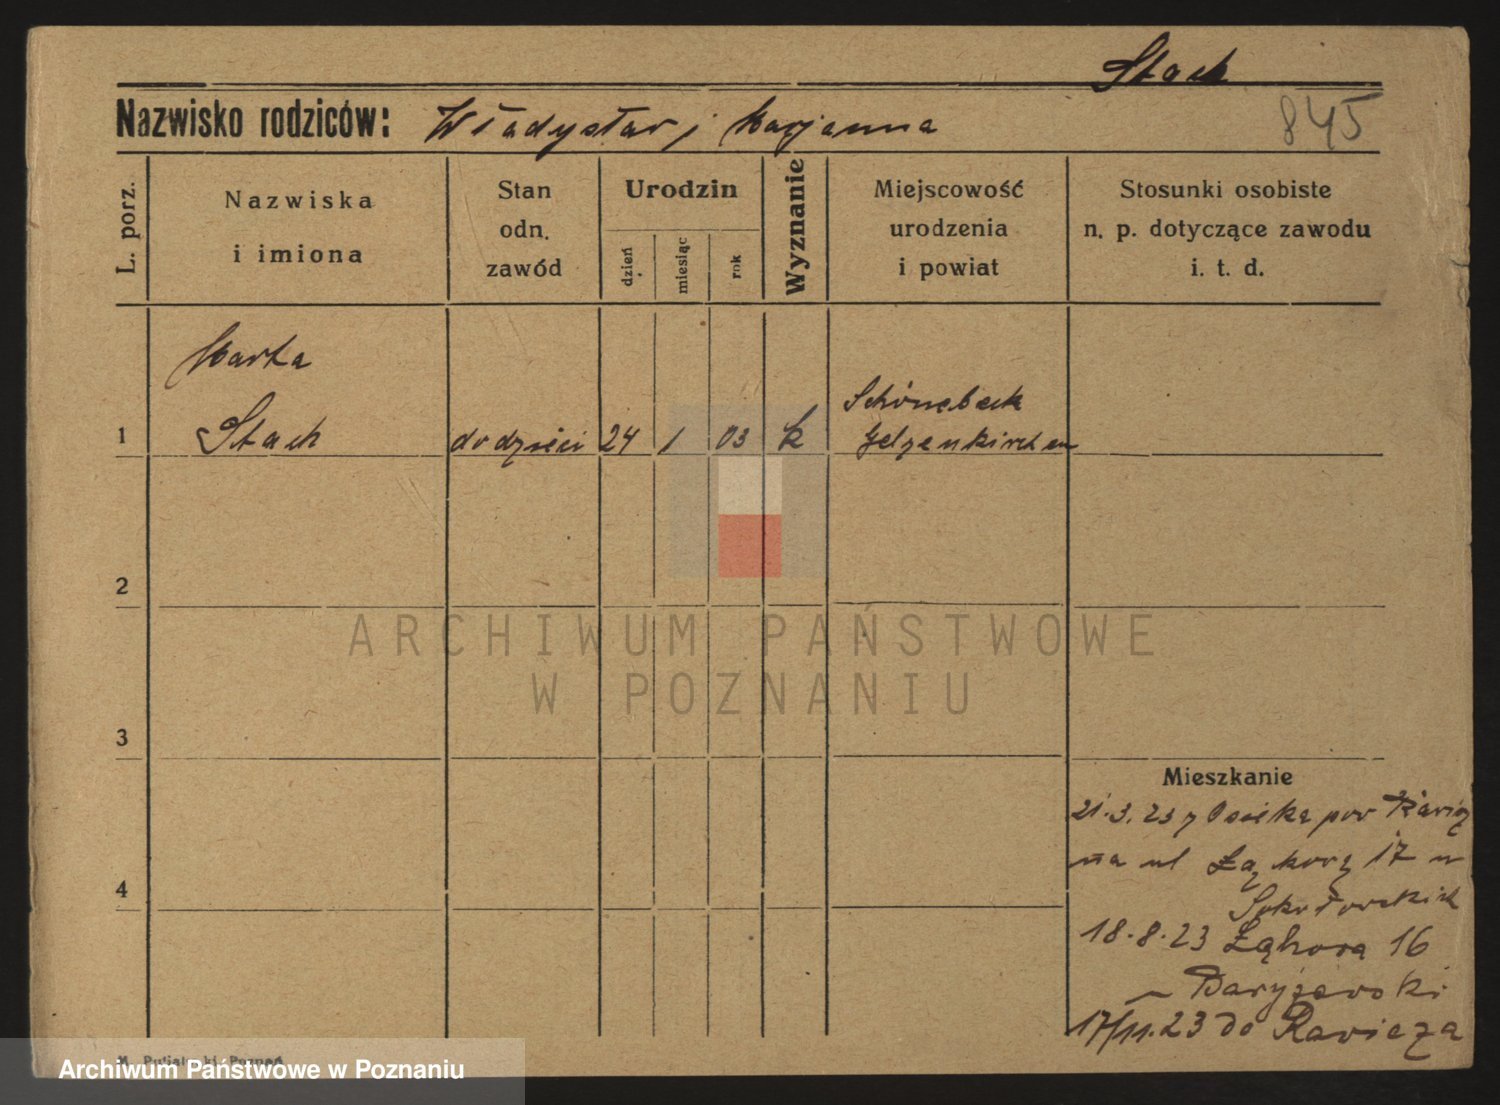 Stach
Nazwisko rodziców: Władysław i Marjanna
845
L. porz.
Nazwiska
i imiona
Stan
odn.
zawód
Urodzin
dzień
miesiąc
rok
Wyznanie
Miejscowość
urodzenia
i powiat
Stosunki osobiste
n. p. dotyczące zawodu
i. t. d.
Marta
1 Stach do dzieci 24 1 03 k Schönebeck
Gelzenkirchen
2
ARCHIWUM PAŃSTWOWE
W POZNANIU
3
Mieszkanie
21.3.23 z Osieka pow Rawicz
4
na ul Łąkową 17 u
Sokołowskich
18.8.23 Łąkowa 16
17/11.23 do Rawicza
Poznań
Archiwum Państwowe w Poznaniu